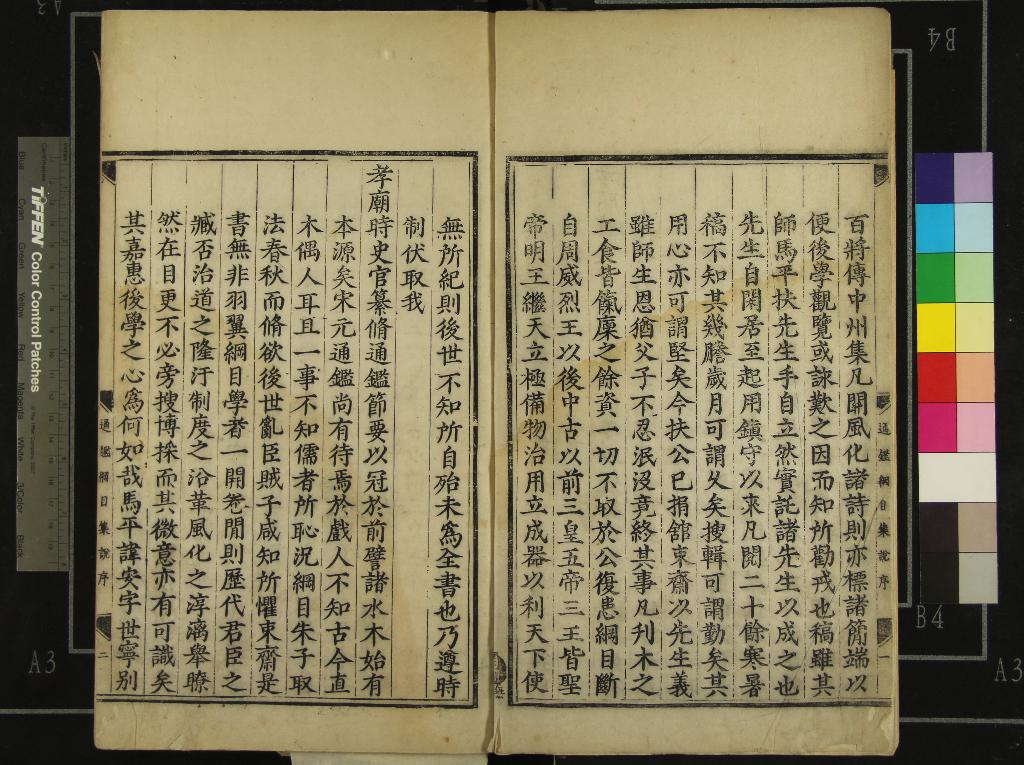 百將傳中州集凡關風化諸詩則亦標諸簡端以
便後學觀覽或詠歎之因而知所勸戒也稿雖其
師馬平扶先生手自立然實託諸先生以成之也
先生自閑居至起用鎮守以來凡閱二十餘寒暑
稿不知其幾謄歲月可謂久矣搜輯可謂勤矣其
用心亦可謂堅矣今扶公已捐舘東齋以先生義
雖師生恩猶父子不忍泯沒竟終其事凡刋木之
工食皆餼廩之餘資一切不取於公復患綱目斷
自周威烈王以後中古以前三皇五帝三王皆聖
帝明王繼天立極備物治用立成器以利天下使
無所紀則後世不知所自殆未為全書也乃遵時
制伏取我
孝廟時史官纂脩通鑑節要以冠於前譬諸水木始有
本源矣宋元通鑑尚有待焉於戲人不知古今直
木偶人耳且一事不知儒者所恥況綱目朱子取
法春秋而脩欲後世亂臣賊子咸知所懼東齋是
書無非羽翼綱目學者一開卷閒則歷代君臣之
臧否治道之隆汙制度之沿革風化之淳漓舉瞭
然在目更不必旁搜博採而其微意亦有可識矣
其嘉惠後學之心為何如哉馬平諱安字世寧別
通鑑綱目集說序 一
通鑑綱目集說序 二
TIFFEN Color Control Patches
Blue Cyan Green Yellow Red Magenta White 3/Color Black
A3
B4
B4
A3
A3